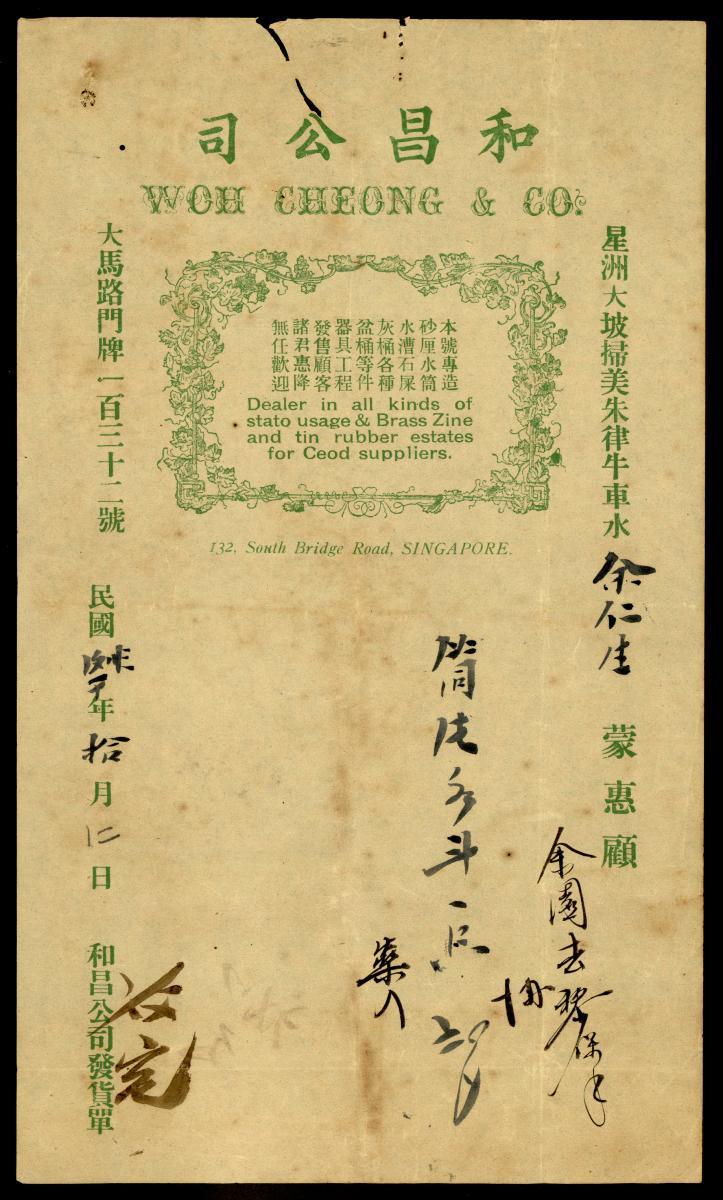 和昌公司
WOH CHEONG & CO.
星洲大坡掃美朱律牛車水
大馬路門牌一百三十二號
本號專造
砂厘水筒
水漕石屎
灰桶各種
盆桶等件
器具工程
發售顧客
諸君惠降
無任歡迎
Dealer in all kinds of
stato usage & Brass Zine
and tin rubber estates
for Ceod suppliers.
132, South Bridge Road, SINGAPORE.
余仁生 蒙惠顧
余園去
斗一
民國 年拾月仁日
和昌公司發貨單